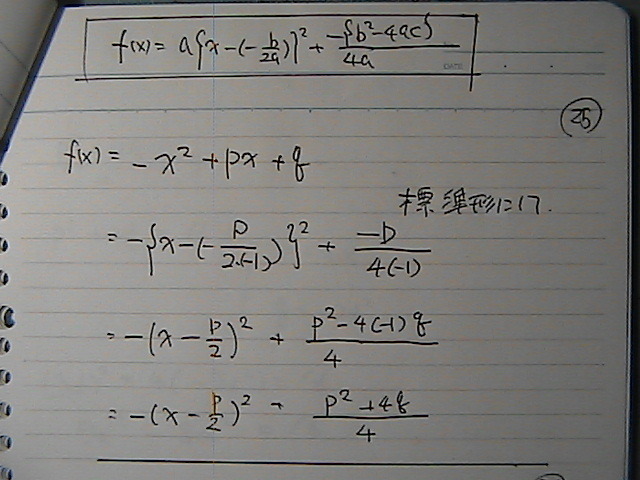 f(x) = a{x-(-b/2a)}² + -{b²-4ac}/4a
DATE
26
f(x) = -x² + px + q
標準形には
= -{x-(-p/2·(-1))}² + -D/4(-1)
= -(x - p/2)² + p²-4(-1)q/4
= -(x - p/2)² + p²+4q/4